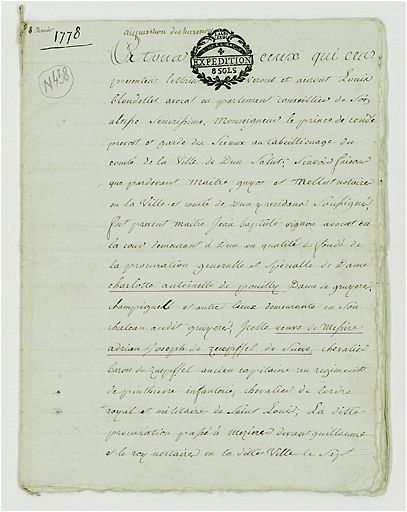 8 Janvier 1778
acquisition de
N458
EXPEDITION
8 SOLS
A tous ceux qui ces
presentes lettres verront et auront Louis
Blondellet avocat en parlement conseillier de Son
altesse Serenissime, Monseigneur le prince de condé
prevot et garde des Sceaux au tabellionage du
comté de la Ville de Dun Salut; Scavoir faisons
que pardevant Maitre guyot et Mellet notaire
en la Ville et comté de Dun y residens Soussignés
fut present maitre Jean baptiste vignon avocat en
la cour demeurant à Dun en qualité de fondé de
la procuration generalle et Specialle de Dame
charlotte antoinette de pouilly Dame de gruyere,
champigneul et autres lieux demeurante en Son
chateau audit gruyere, Icelle veuve de Messire
adrian Joseph de zuepffel de Suève, chevalier
baron de zuepffel ancien capitaine au regiment
de penthievre infanterie, chevalier de l'ordre
royal et militaire de Saint Louis, La ditte
procuration passé à mezieres devant guillaume
et le roy nottaires en la ditte Ville le Sept